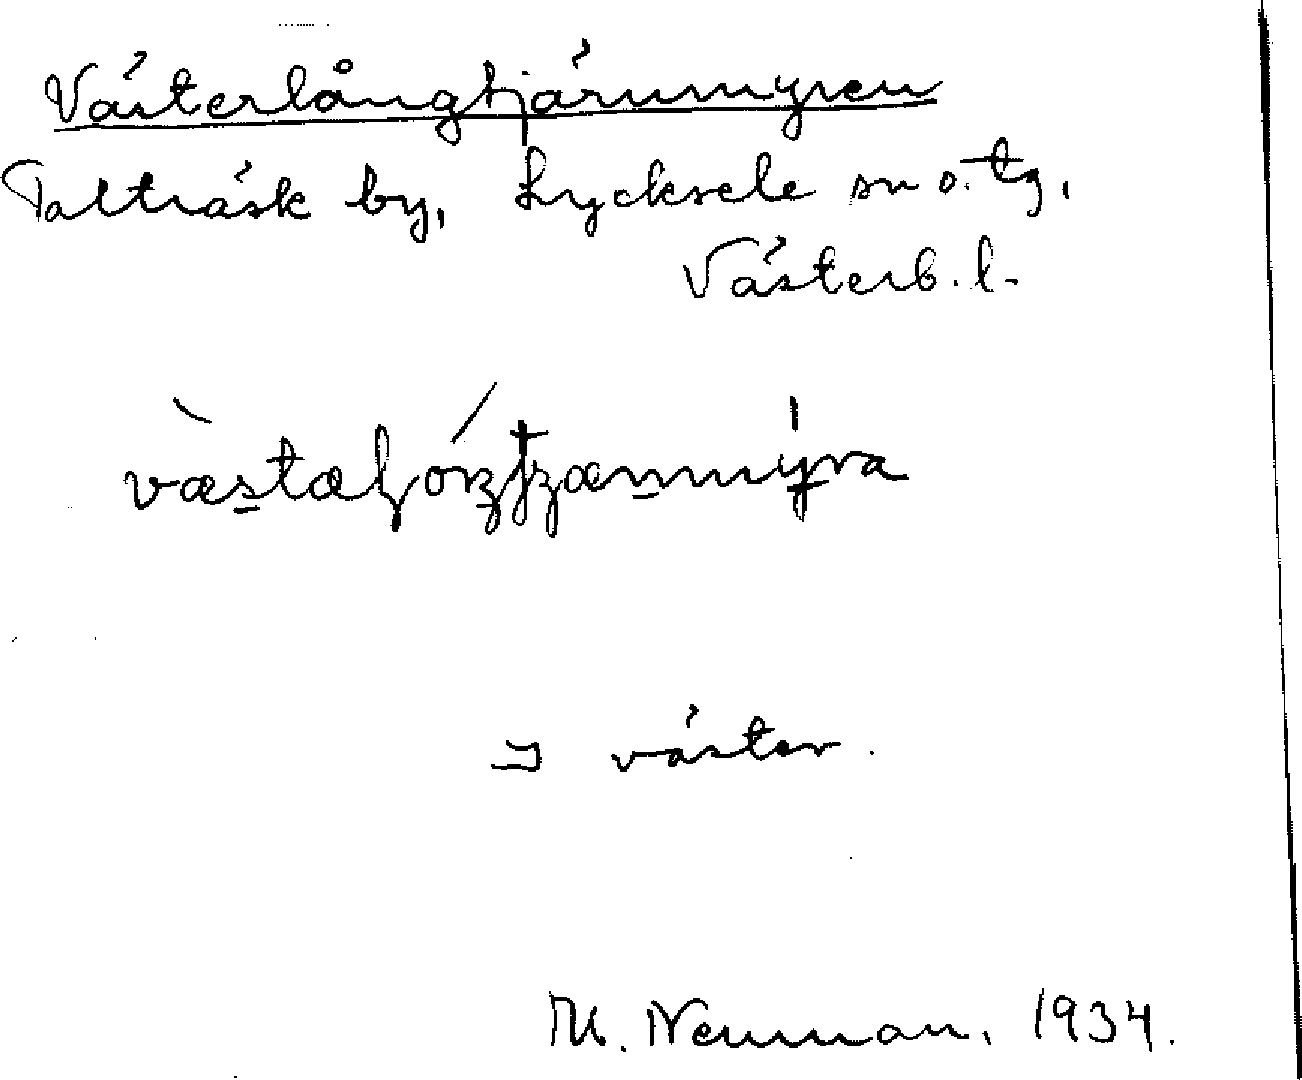 Västerlångtjärnmyren
Talträsk by, Lycksele sn o. tg,
Västerb. l.
väster.
M. Neuman, 1934.